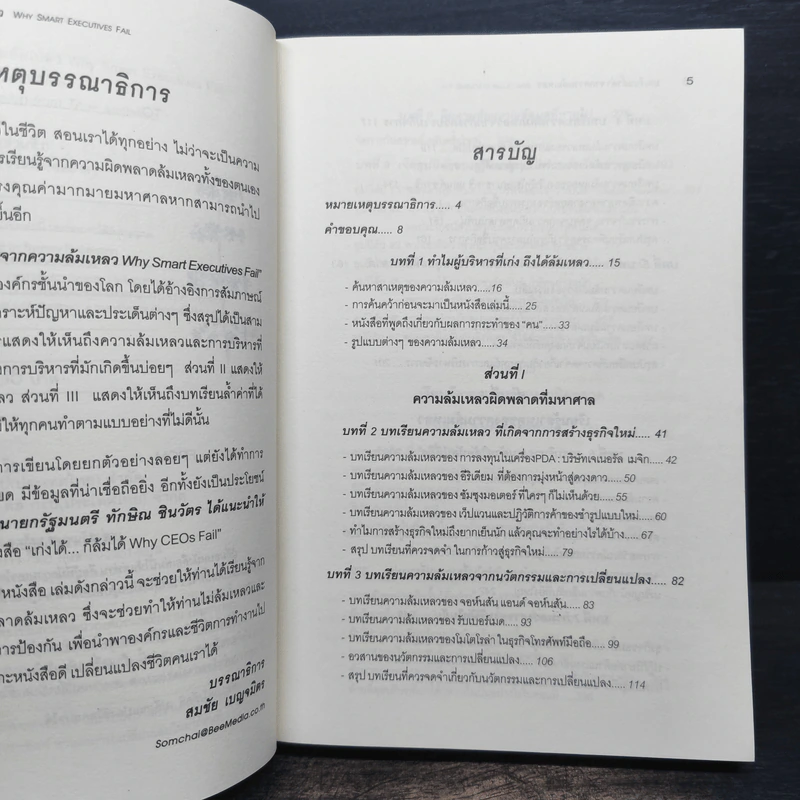 WHY SMART EXECUTIVES FAIL
หตุบรรณาธิการ
ในชีวิต สอนเราได้ทุกอย่าง ไม่ว่าจะเป็นความ
รเรียนรู้จากความผิดพลาดล้มเหลวทั้งของตนเอง
รงคุณค่ามากมายมหาศาลหากสามารถนำไป
ขึ้นอีก
จากความล้มเหลว Why Smart Executives Fail"
องค์กรชั้นนำของโลก โดยได้อ้างอิงการสัมภาษณ์
คราะห์ปัญหาและประเด็นต่างๆ ซึ่งสรุปได้เป็นสาม
รแสดงให้เห็นถึงความล้มเหลวและการบริหารที่
การบริหารที่มักเกิดขึ้นบ่อยๆ ส่วนที่ II แสดงให้
ลว ส่วนที่ III แสดงให้เห็นถึงบทเรียนล้ำค่าที่ได้
ห้ทุกคนทำตามแบบอย่างที่ไม่ดีนั้น
การเขียนโดยยกตัวอย่างลอยๆ แต่ยังได้ทำการ
ยด มีข้อมูลที่น่าเชื่อถือยิ่ง อีกทั้งยังเป็นประโยชน์
นายกรัฐมนตรี ทักษิณ ชินวัตร ได้แนะนำให้
งสือ "เก่งได้... ก็ล้มได้ Why CEOs Fail"
หนังสือ เล่มดังกล่าวนี้ จะช่วยให้ท่านได้เรียนรู้จาก
ลาดล้มเหลว ซึ่งจะช่วยทำให้ท่านไม่ล้มเหลวและ
การป้องกัน เพื่อนำพาองค์กรและชีวิตการทำงานไป
าะหนังสือดี เปลี่ยนแปลงชีวิตคนเราได้
บรรณาธิการ
สมชัย เบญจมิตร
Somchai@BeeMedia.co.th
5
สารบัญ
หมายเหตุบรรณาธิการ..... 4
คำขอบคุณ..... 8
บทที่ 1 ทำไมผู้บริหารที่เก่ง ถึงได้ล้มเหลว..... 15
- ค้นหาสาเหตุของความล้มเหลว.....16
- การค้นคว้าก่อนจะมาเป็นหนังสือเล่มนี้..... 25
- หนังสือที่พูดถึงเกี่ยวกับผลการกระทำของ "คน"..... 33
- รูปแบบต่างๆ ของความล้มเหลว..... 34
ส่วนที่ I
ความล้มเหลวผิดพลาดที่มหาศาล
บทที่ 2 บทเรียนความล้มเหลว ที่เกิดจากการสร้างธุรกิจใหม่..... 41
- บทเรียนความล้มเหลวของ การลงทุนในเครื่องPDA : บริษัทเจเนอรัล เมจิก..... 42
- บทเรียนความล้มเหลวของ อีริเดียม ที่ต้องการมุ่งหน้าสู่ดวงดาว..... 50
- บทเรียนความล้มเหลวของ ซัมซุงมอเตอร์ ที่ใครๆ ก็ไม่เห็นด้วย..... 55
- บทเรียนความล้มเหลวของ เว็ปแวนและปฏิวัติการค้าของชำรูปแบบใหม่..... 60
- ทำไมการสร้างธุรกิจใหม่ถึงยากเย็นนัก แล้วคุณจะทำอย่างไรได้บ้าง..... 67
- สรุป บทเรียนที่ควรจดจำ ในการก้าวสู่ธุรกิจใหม่..... 79
บทที่ 3 บทเรียนความล้มเหลวจากนวัตกรรมและการเปลี่ยนแปลง..... 82
- บทเรียนความล้มเหลวของ จอห์นสัน แอนด์ จอห์นสัน..... 83
- บทเรียนความล้มเหลวของ รับเบอร์เมด..... 93
- บทเรียนความล้มเหลวของโมโตโรล่า ในธุรกิจโทรศัพท์มือถือ..... 99
- อวสานของนวัตกรรมและการเปลี่ยนแปลง..... 106
- สรุป บทเรียนที่ควรจดจำเกี่ยวกับนวัตกรรมและการเปลี่ยนแปลง..... 114